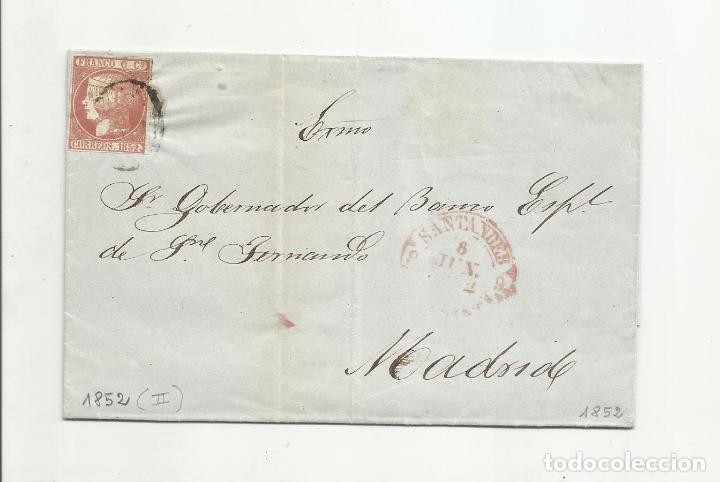 FRANCO 6 Cs
CORREOS. 1852
Exmo
Sr. Gobernador del Banco Espl.
de Sn. Fernando
SANTANDER
8
JUN.
2
Madrid
1852 (II)
1852
todocoleccion
todocoleccion.net